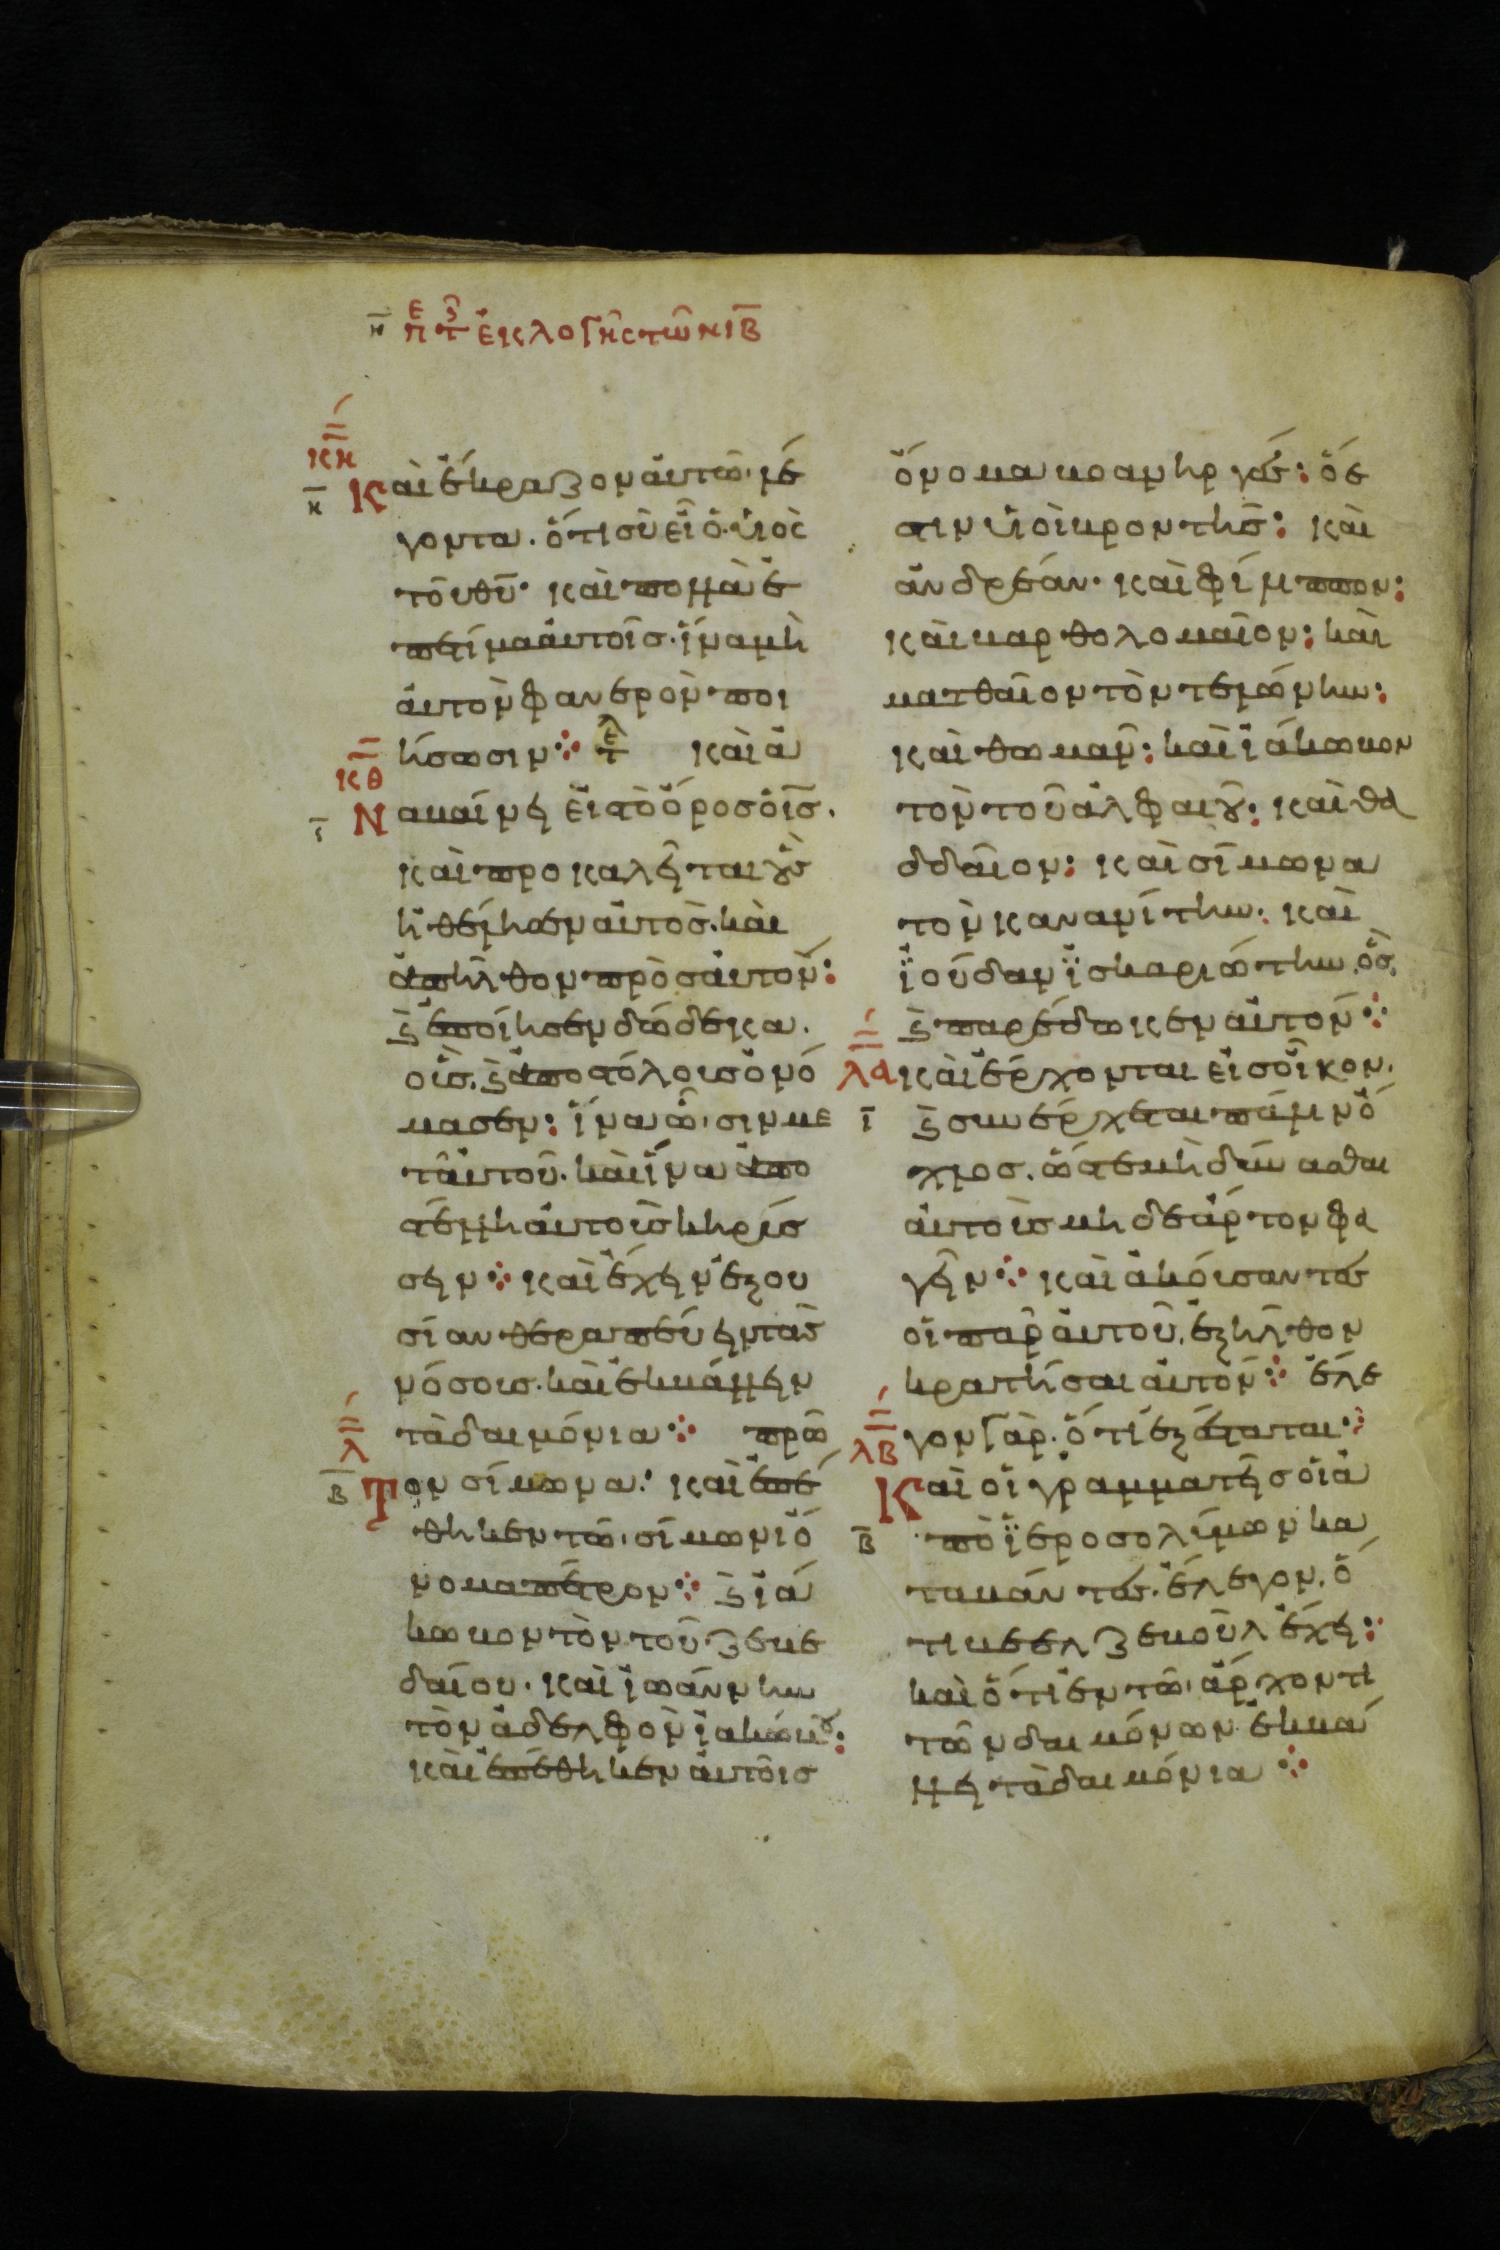 η̅ πε τζ ἐικλογῆς τῶν ιβ̅
κη
η̅ Καὶ ἔκραζον ἀυτῶ· λέ
γοντα. ὅτι σὺ εἶ ὁ ὑιὸς
τοῦ θῦ· καὶ πολλὰ ἐ
πετίμα ἀυτοῖσ· ἵνα μὴ
ἀυτὸν φανερὸν ποι
ήσωσιν ⁘ τελ καὶ ἀ
κθ
ι̅ Ναβαίνει εἰς τὸ ὄροσ ὁ ι̅σ̅.
καὶ προκαλεῖται οὓς
ἤθέλησεν αὐτὸσ. καὶ
ἀπῆλθον πρὸσ ἀυτὸν:
ϛ̀ ἐποίησεν δώδεκα.
οὓσ, ϛ̀ ἀποστόλουσ ὀνό
μασεν: ἵνα ὦσιν με
τ᾽ἀυτοῦ. καὶ ἵνα ἀπο
στέλλη ἀυτοὺσ κηρύσ
σειν ⁘ καὶ ἔχειν ἐξου
σίαν θεραπεύειν τὰσ
νόσουσ. καὶ ἐκβάλλειν
τὰ δαιμόνια ⁘ πρῶ
λ
β̅ Τον σίμωνα: καὶ ἐπέ
θηκεν τῶ σίμωνι ὄ
νομα πέτρον ⁘ ϛ̀ ἰά
κωβον τὸν τοῦ ζεβε
δαίου· καὶ ἰωάννην
τὸν ἀδελφὸν ἰακώβου:
καὶ ἐπέθηκεν ἀυτοῖσ
ὄνομα βοανηργές: ὅ ἐ
στιν ὑιοὶ βροντῆσ: καὶ
ἀνδρέαν· καὶ φίλιππον:
καὶ βαρθολομαῖον: καὶ
ματθαῖον τὸν τελώνην:
καὶ θωμᾶν: καὶ ἰάκωβον
τὸν τοῦ ἀλφαίου: καὶ θα
δδαῖον: καὶ σίμωνα
τὸν κανανίτην. καὶ
ϊούδαν ϊσκαριώτην, ὃσ,
ϛ̀ παρέδωκεν ἀυτόν ⁘
λα καὶ ἔρχονται εἰσ οἶκον.
ι̅ ϛ̀ συνέρχεται πάλιν ὄ
χλοσ. ὥστε μὴ δύνασθαι
ἀυτοὺσ μηδὲ ἄρτον φα
γεῖν ⁘ καὶ ἀκόυσαντεσ
οἱ παρ ἀυτοῦ, ἐξῆλθον
κρατῆσαι ἀυτόν ⁘ ἔλε
λβ γον γὰρ. ὅτι ἐξέσταται ⁘
Καὶ οἱ γραμματεῖσ οἱ ἀ
β̅ πὸ ϊεροσολύμων κα
ταβάντεσ. ἔλεγον, ὅ
τι βεελζεβοῦλ ἔχει:
καὶ ὅτι ἐν τῶ ἄρχοντι
τῶν δαιμόνων ἐκβά
λλει τὰ δαιμόνια ⁘